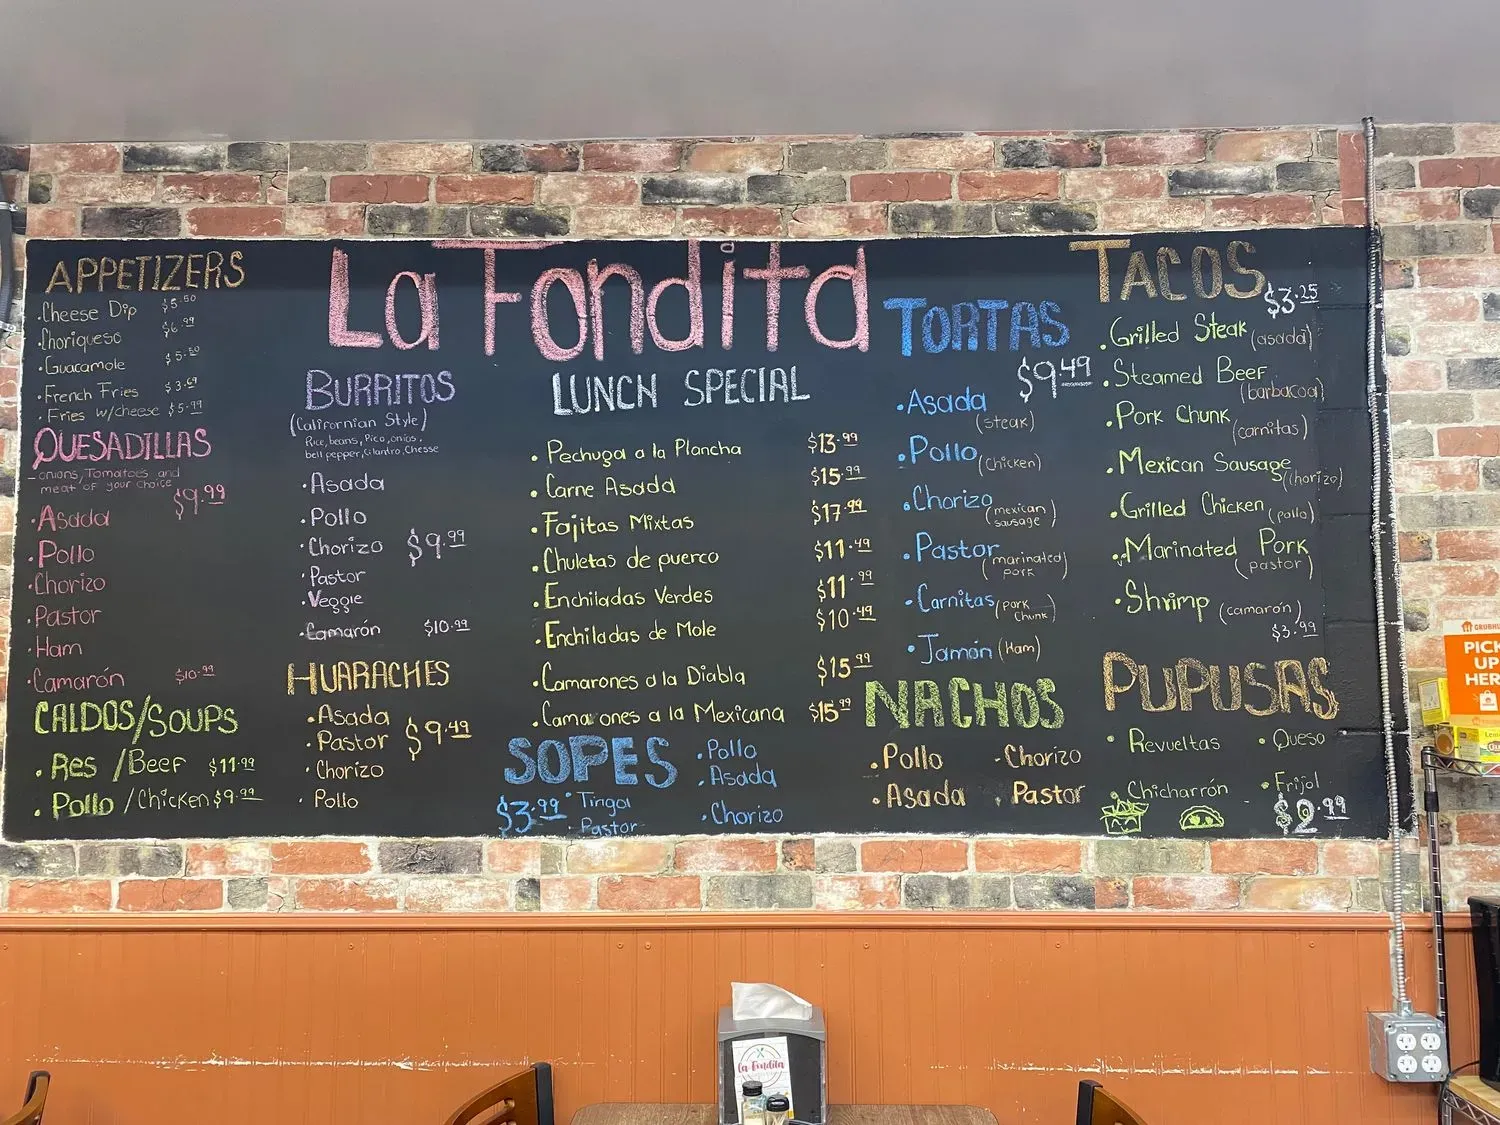 La Fondita
APPETIZERS
·Cheese Dip $5.50
·Choriqueso $6.99
·Guacamole $5.50
·French Fries $3.69
·Fries w/cheese $5.99
QUESADILLAS
onions, Tomatoes and
meat of your choice
$9.99
·Asada
·Pollo
·Chorizo
·Pastor
·Ham
·Camarón $10.99
CALDOS/SOUPS
·Res /Beef $11.99
·Pollo /Chicken $9.99
BURRITOS
(Californian Style)
Rice, beans, Pico, onios,
bell pepper, cilantro, Chesse
·Asada
·Pollo
·Chorizo $9.99
·Pastor
·Veggie
·Camarón $10.99
HUARACHES
·Asada
·Pastor $9.49
·Chorizo
·Pollo
LUNCH SPECIAL
·Pechuga a la Plancha $13.99
·Carne Asada $15.99
·Fajitas Mixtas $17.99
·Chuletas de puerco $11.49
·Enchiladas Verdes $11.99
·Enchiladas de Mole $10.49
·Camarones a la Diabla $15.99
·Camarones a la Mexicana $15.99
SOPES
$3.99
·Tinga
·Pastor
·Pollo
·Asada
·Chorizo
TORTAS
$9.49
·Asada
(steak)
·Pollo (Chicken)
·Chorizo
(mexican
sausage)
·Pastor
(marinated
pork)
·Carnitas (pork
Chunk)
·Jamón (Ham)
NACHOS
·Pollo ·Chorizo
·Asada ·Pastor
TACOS
$3.25
·Grilled Steak (asada)
·Steamed Beef
(barbacoa)
·Pork Chunk
(carnitas)
·Mexican Sausage
(chorizo)
·Grilled Chicken (pollo)
·Marinated Pork
(pastor)
·Shrimp (camarón)
$3.99
PUPUSAS
·Revueltas ·Queso
·Chicharrón ·Frijol
$2.99
GRUBHU
PICK
UP
HER
La Fondita